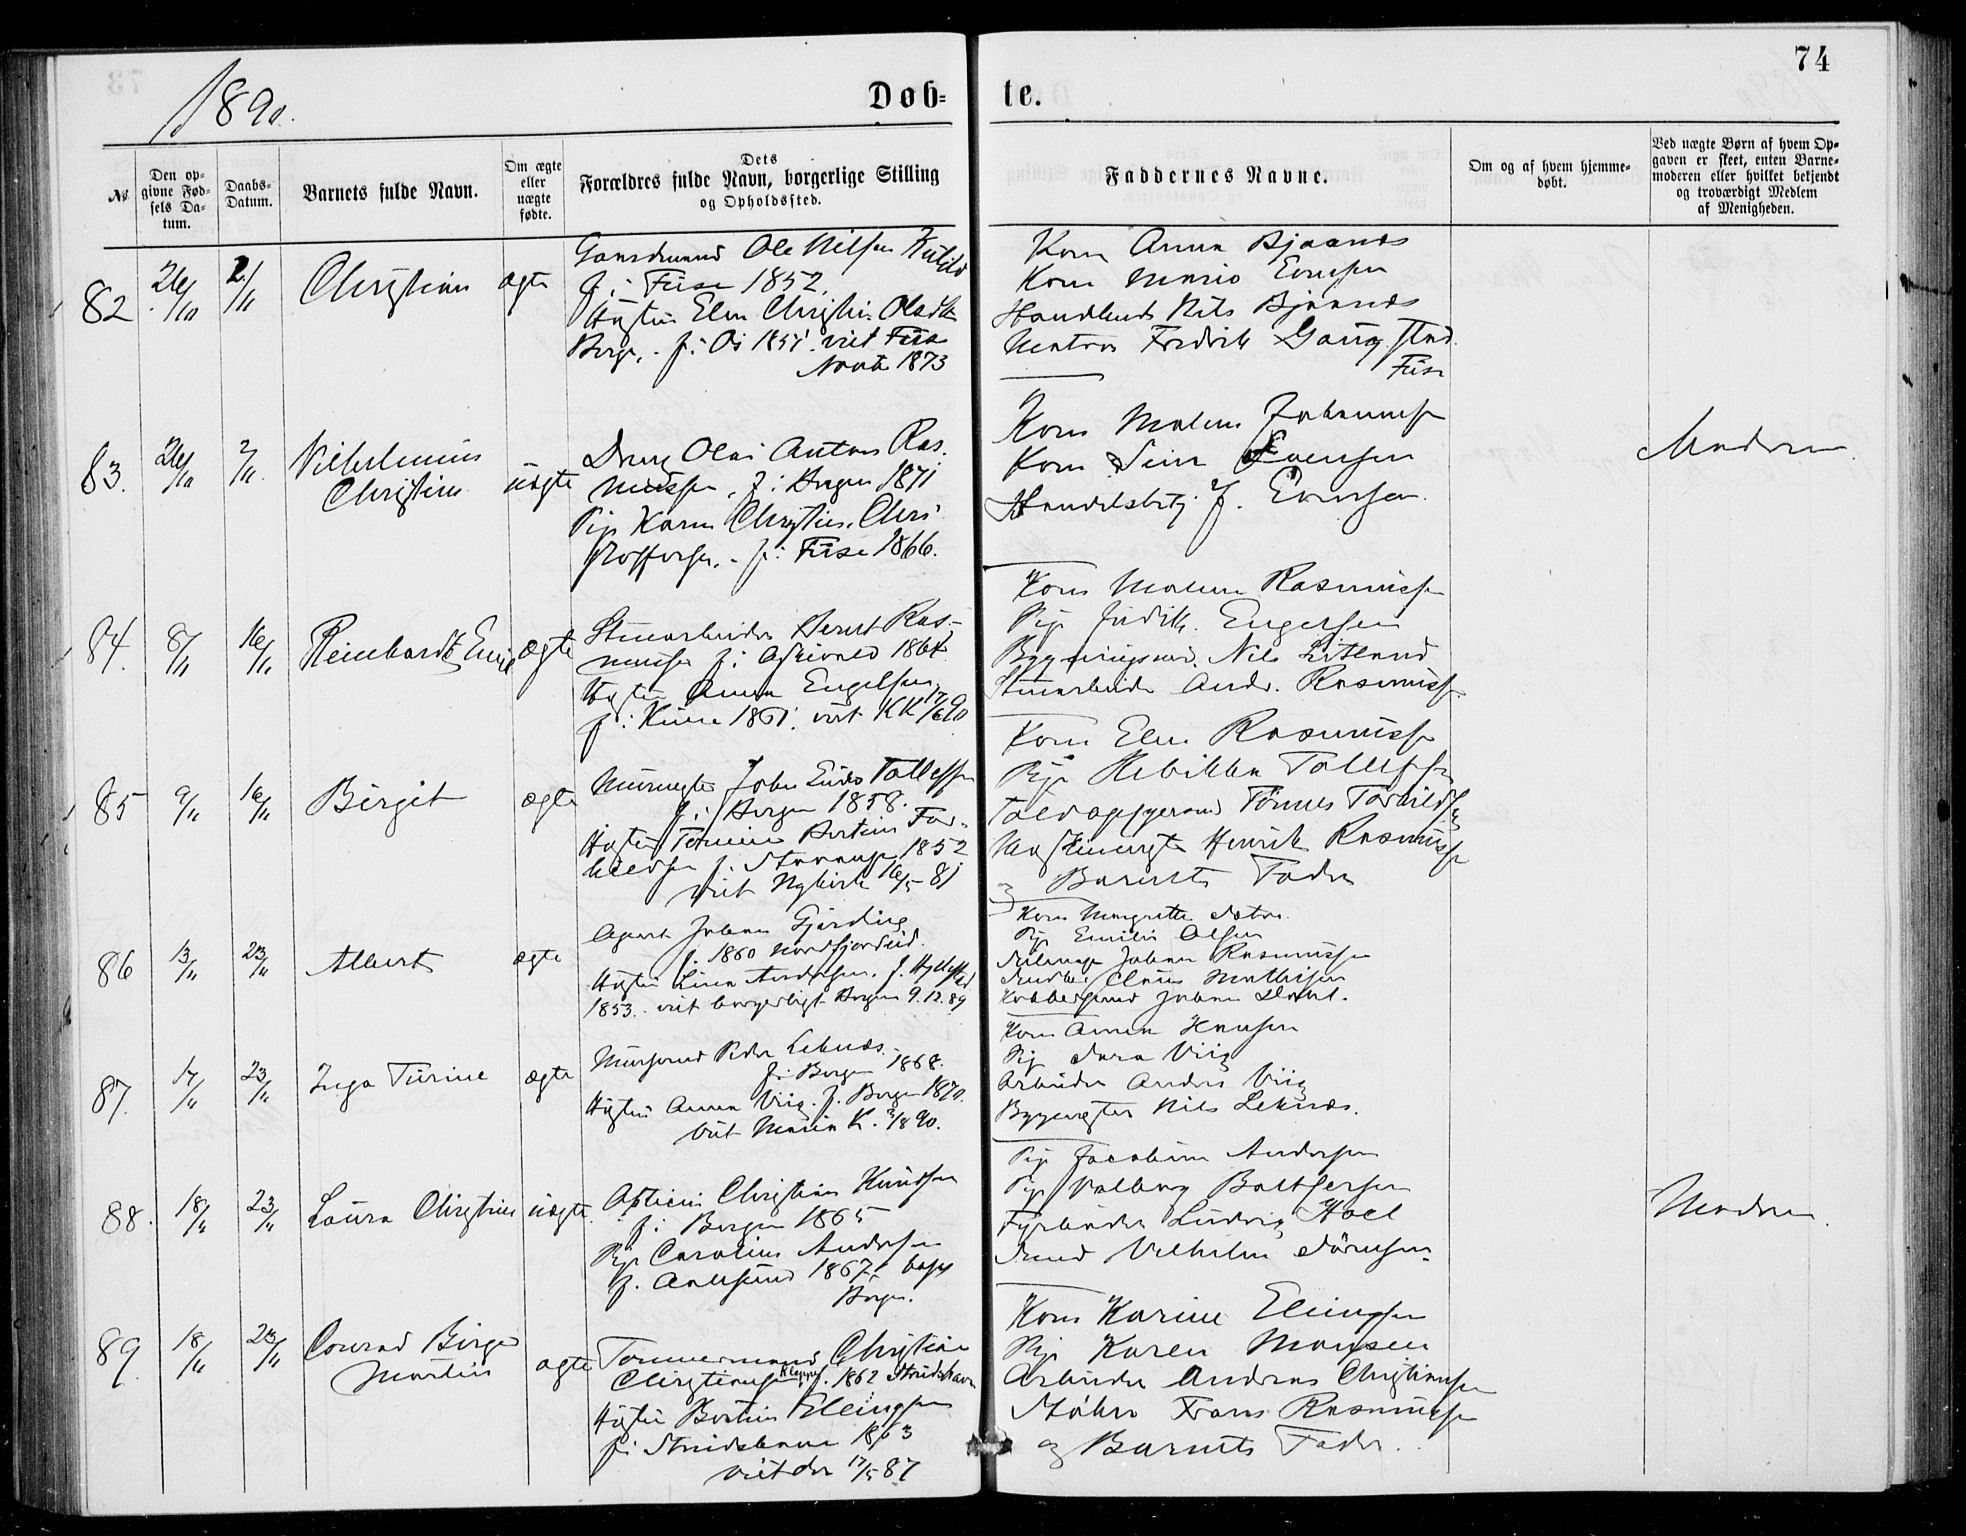 74
1890.
Døb=
te.
№
Den op=
givne Fød=
sels Da=
tum.
Daabs=
Datum.
Barnets fulde Navn.
Om ægte
eller
uægte
fødte.
Dets
Forældres fulde Navn, borgerlige Stilling
og Opholdssted.
Faddernes Navne.
Om og af hvem hjemme=
døbt.
Ved uægte Børn af hvem Op=
gaven er skeet, enten Barne=
moderen eller hvilket bekjendt
og troværdigt Medlem
af Menigheden.
82
26/10
2/11
Christian
ægte
Ole Nilsen
f. i Fuse 1852.
Hustru Elen Christi. Olsdtr
Berge. f. i Os 1851. viet Fuse
1873
Kone Anna Bjaanes
Kone Marie Evensen
Nils Bjaanes
Matros Fredrik Gaugstad.
Fuse
83.
26/10
2/11.
Vilhelmine
Christine
uægte
Dreng Olai Anton Ras=
mussen, f. i Bergen 1871
Pige Karen Christine Chri
stoffersen. f. i Fuse 1866.
Kone Malene Johannesen
Kone Sina Evensen
Handelsbetj. J. Evensen.
Moderen.
84.
8/11
16/11
Reinhardt Emil
ægte
Stuearbeider Berent Ras=
musen f. i Askvold 1864
Hustru Anna Engelsen
f. i Kinn 1861. viet KK 17/6 90
Kone Malene Rasmussen
Pige Engelsen
Bygningssnd. Nils
Stuearbeider Andr. Rasmussen.
85
9/11
16/11
Birgit
ægte
Murmester Johan Tollefsen
f. i Bergen 1858.
Hustru Tomine Bertine Tor=
kildsen f. i Stavanger 1852
viet Nykirk 16/5 81
Kone Elen Rasmussen
Pige Rebikka Tollefsen
Tønnes Torkildsen
Henrik Rasmussen
og Barnets Fader
86
13/11
23/11
Albert
ægte
Agent Johan Gjerding
f. 1860 Nordfjordeid.
Hustru Lina Andersen. f. Hyllestad
1853. viet borgerligt Bergen 9.12.89
Kone Margrethe
Pige Emilie Olsen
Johan Rasmussen
Claus Mathisen
Kobbersmed Johan
87.
17/11
23/11
Inga Turine
ægte
Mursvend Peder Leknes.
f. i Bergen 1868.
Hustru Anna Viig. f. Bergen 1870.
viet Maria K. 3/8 90.
Kone Anna Hansen
Pige Sara Viig
Arbeider Anders Viig
Bygmester Nils Leknes.
88.
18/11
23/11
Laura Christine
uægte.
Christian Knudsen
f. i Bergen 1865
Pige Caroline Andersen
f. Aalesund 1867. bopæl
Bergen.
Pige Jacobine Andersen
Pige Valborg Baltsersen
Fyrbøder Ludvig Hoel
Smed Vilhelm Sørensen.
Moderen.
89.
18/11
23/11
Conrad Birger
Martin
ægte
Tømmermand Christian
Christiansen Kleppe, f. 1862 Strudshavn
Hustru Bertine Ellingsen
f. i Strudshavn 1863
viet der 17/5 87
Kone Karine Elingsen
Pige Karen Monsen
Arbeider Andreas Christiansen
Støber Frans Rasmussen
og Barnets Fader.